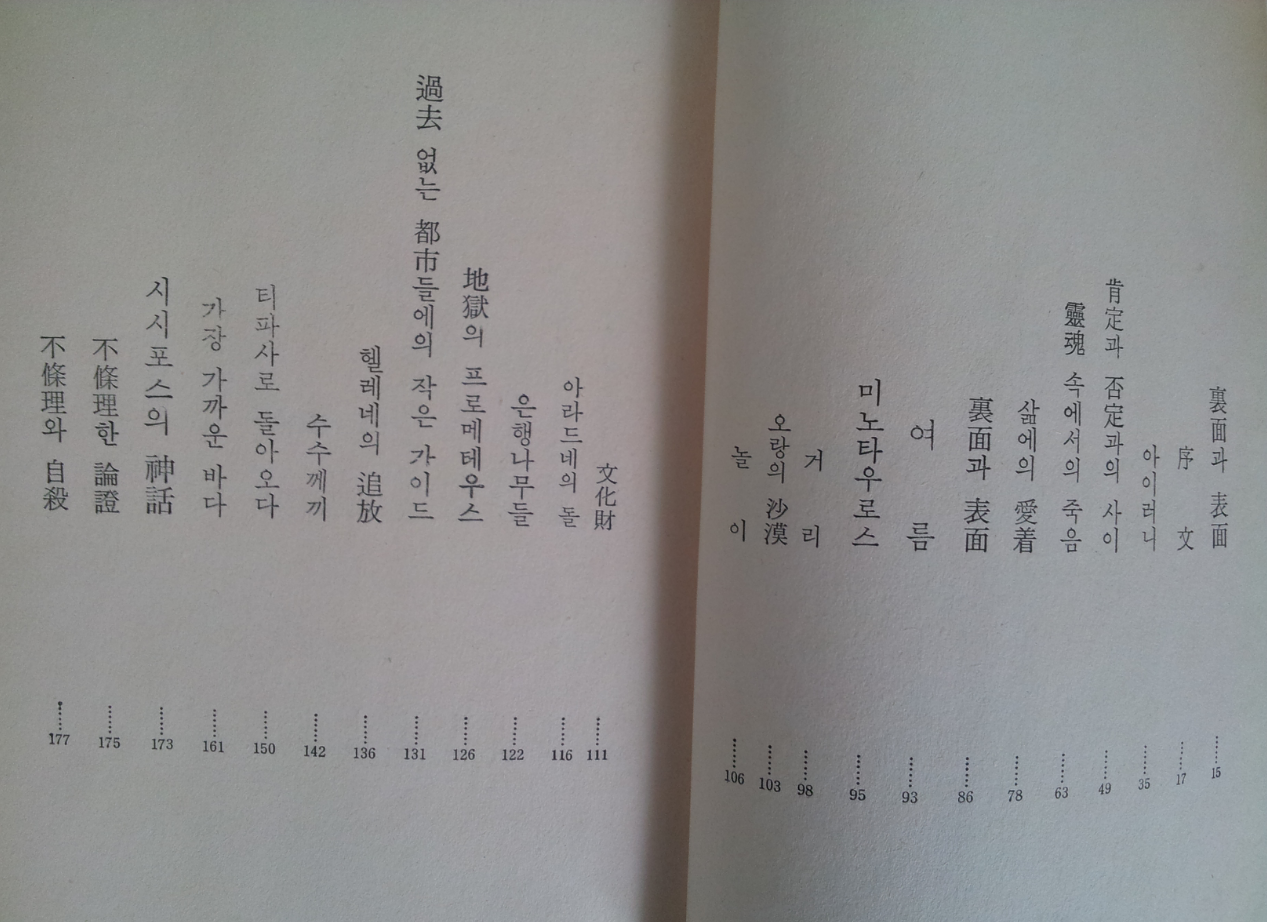 裏面과 表面 ⋯⋯ 15
序文 ⋯⋯ 17
아이러니 ⋯⋯ 35
肯定과 否定과의 사이 ⋯⋯ 49
靈魂 속에서의 죽음 ⋯⋯ 63
삶에의 愛着 ⋯⋯ 78
裏面과 表面 ⋯⋯ 86
여름 ⋯⋯ 93
미노타우로스 ⋯⋯ 95
거리 ⋯⋯ 98
오랑의 沙漠 ⋯⋯ 103
놀이 ⋯⋯ 106
文化財 ⋯⋯ 111
아라드네의 돌 ⋯⋯ 116
은행나무들 ⋯⋯ 122
地獄의 프로메테우스 ⋯⋯ 126
過去 없는 都市들에의 작은 가이드 ⋯⋯ 131
헬레네의 追放 ⋯⋯ 136
수수께끼 ⋯⋯ 142
티파사로 돌아오다 ⋯⋯ 150
가장 가까운 바다 ⋯⋯ 161
시시포스의 神話 ⋯⋯ 173
不條理한 論證 ⋯⋯ 175
不條理와 自殺 ⋯⋯ 177